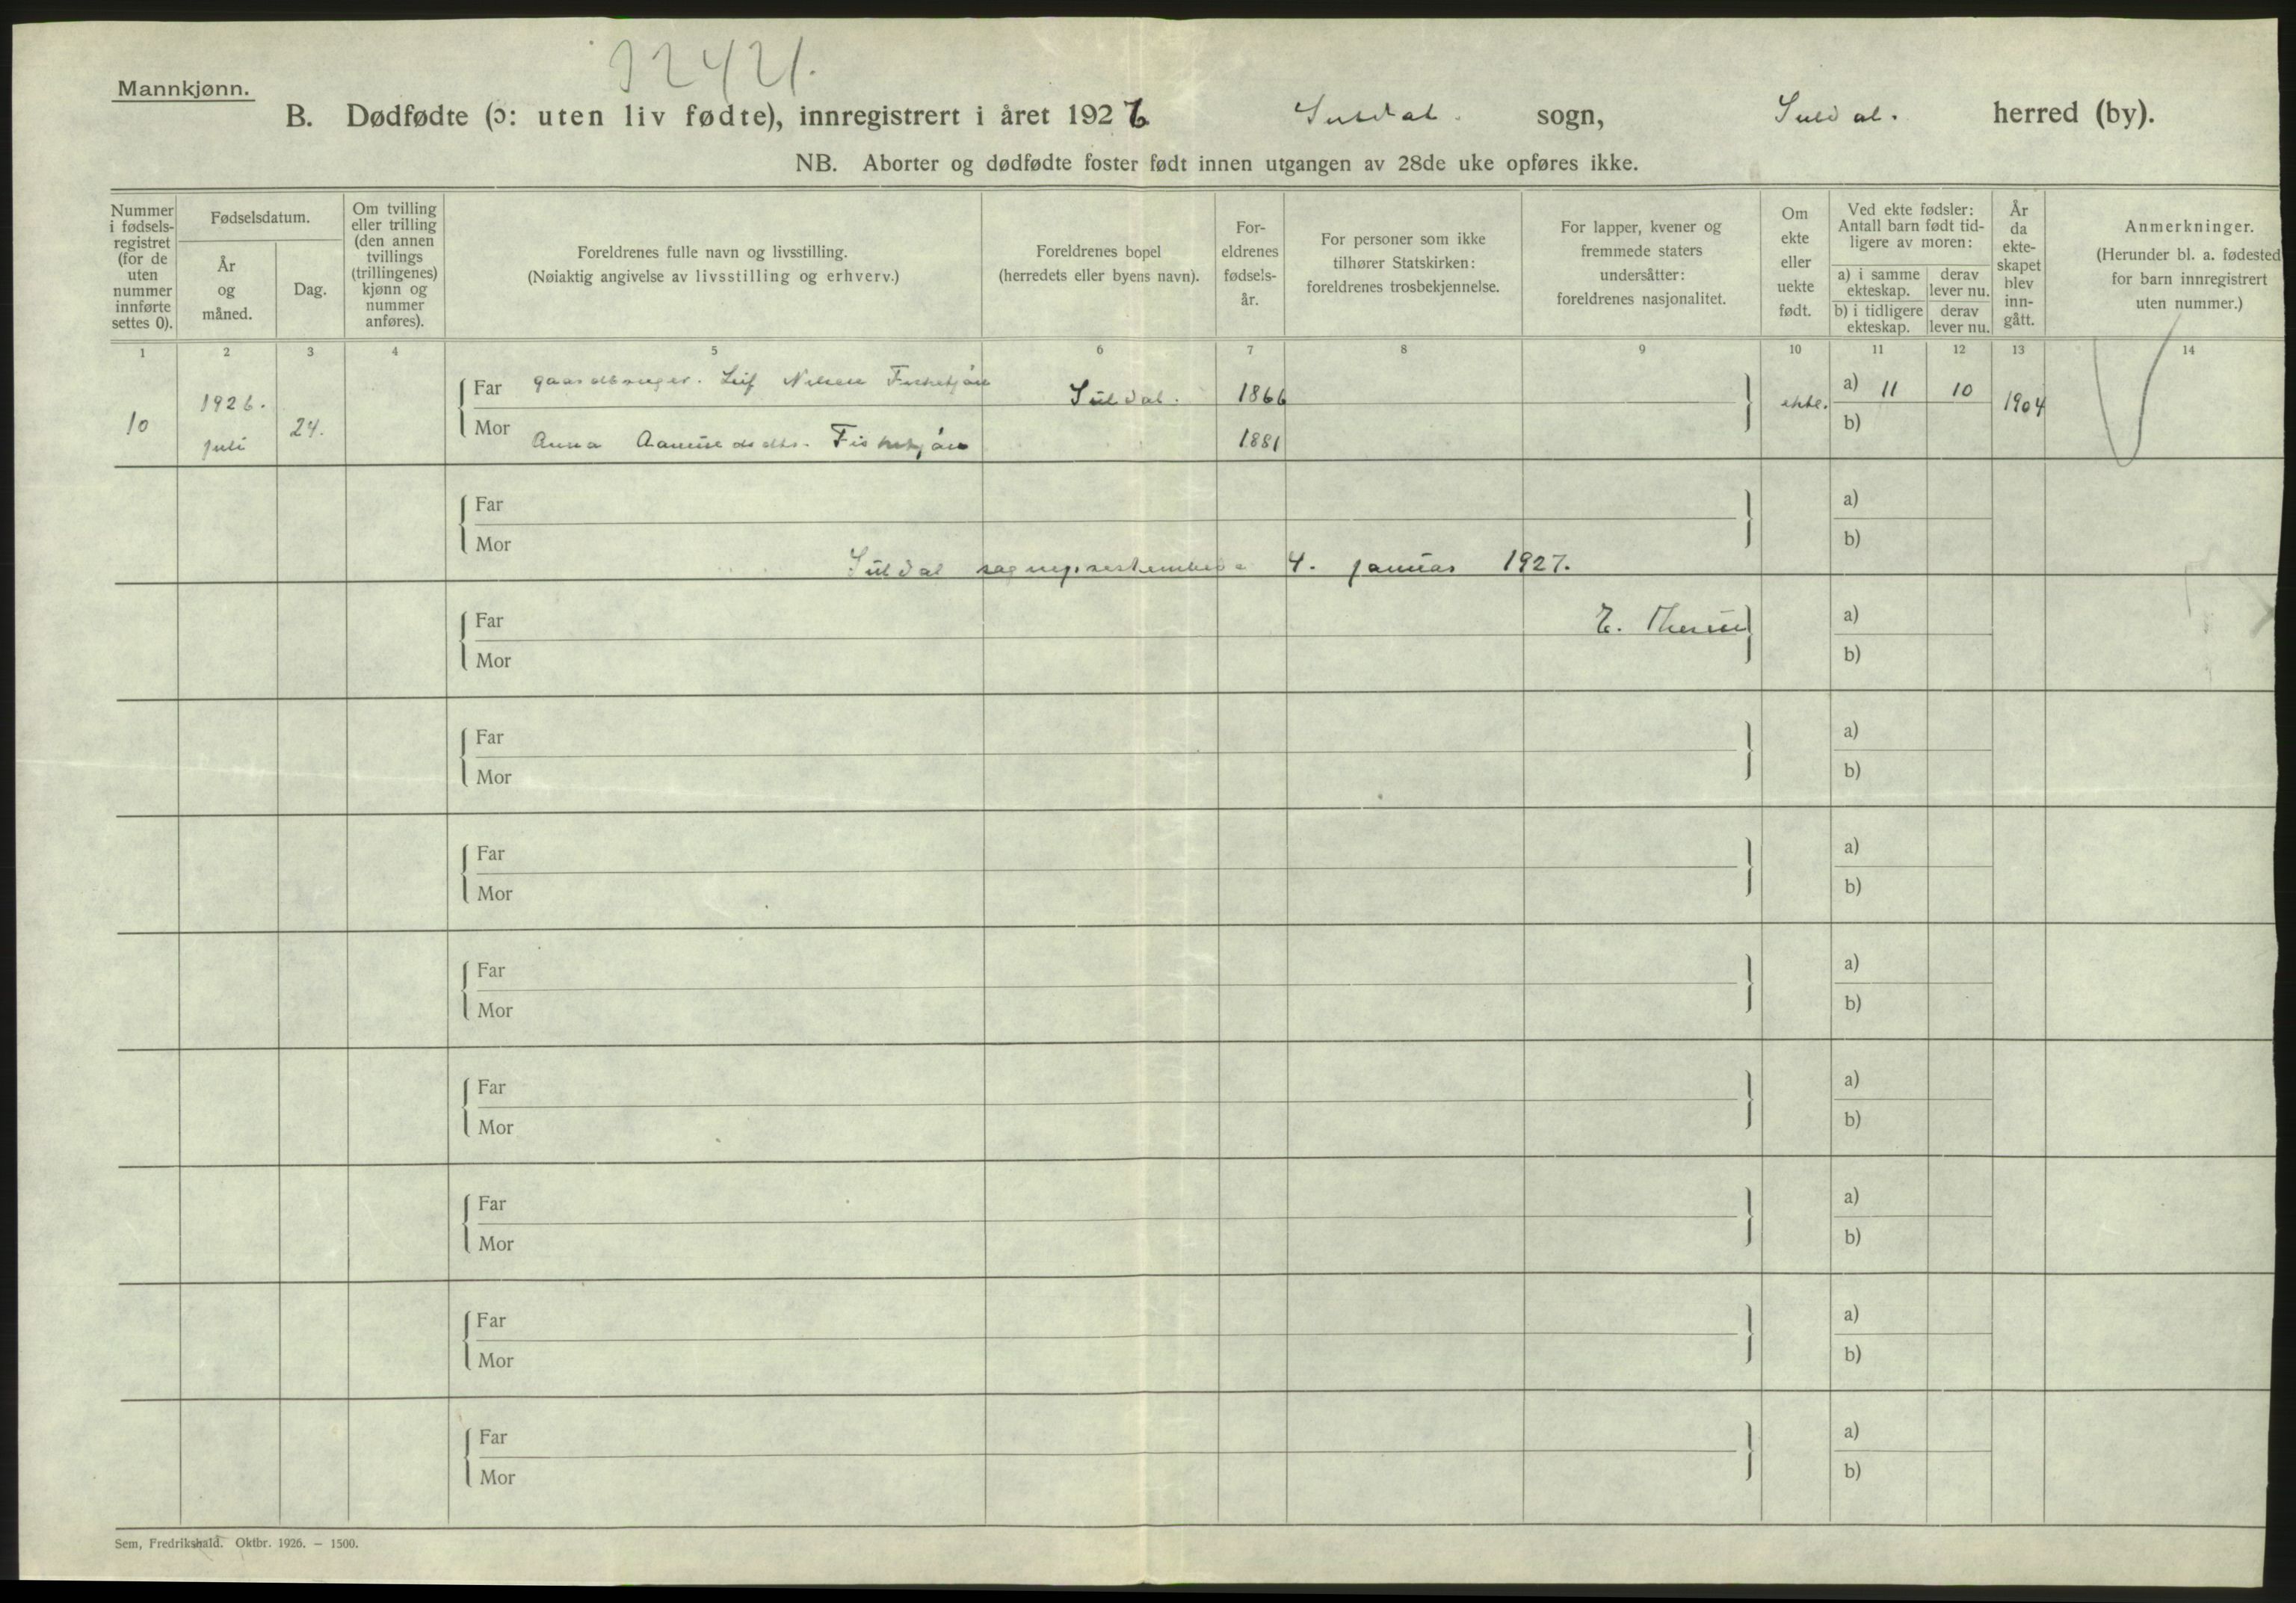 32421.
Mannkjønn.
B. Dødfødte (ɔ: uten liv fødte), innregistrert i året 1926 Suldal. sogn, Suldal. herred (by).
NB. Aborter og dødfødte foster født innen utgangen av 28de uke opføres ikke.
Nummer i fødsels-registret (for de uten nummer innførte settes 0).
Fødselsdatum.
År og måned.
Dag.
Om tvilling eller trilling (den annen tvillings (trillingenes) kjønn og nummer anføres).
Foreldrenes fulle navn og livsstilling.
(Nøiaktig angivelse av livsstilling og erhverv.)
Foreldrenes bopel
(herredets eller byens navn).
For-eldrenes fødsels-år.
For personer som ikke tilhører Statskirken: foreldrenes trosbekjennelse.
For lapper, kvener og fremmede staters undersåtter: foreldrenes nasjonalitet.
Om ekte eller uekte født.
Ved ekte fødsler: Antall barn født tid-ligere av moren:
a) i samme ekteskap.
derav lever nu.
b) i tidligere ekteskap.
derav lever nu.
År da ekte-skapet blev inn-gått.
Anmerkninger.
(Herunder bl. a. fødested for barn innregistrert uten nummer.)
1 2 3 4 5 6 7 8 9 10 11 12 13 14
10 1926. juli 24.
Far Leif Nilsen Suldal. 1866 ekte. a) 11 10 1904
Mor Anna 1881 b)
Far a)
Mor b)
Suldal 4. januar 1927.
Far E. a)
Mor b)
Far a)
Mor b)
Far a)
Mor b)
Far a)
Mor b)
Far a)
Mor b)
Far a)
Mor b)
Far a)
Mor b)
Far a)
Mor b)
Sem, Fredrikshald. Oktbr. 1926. — 1500.